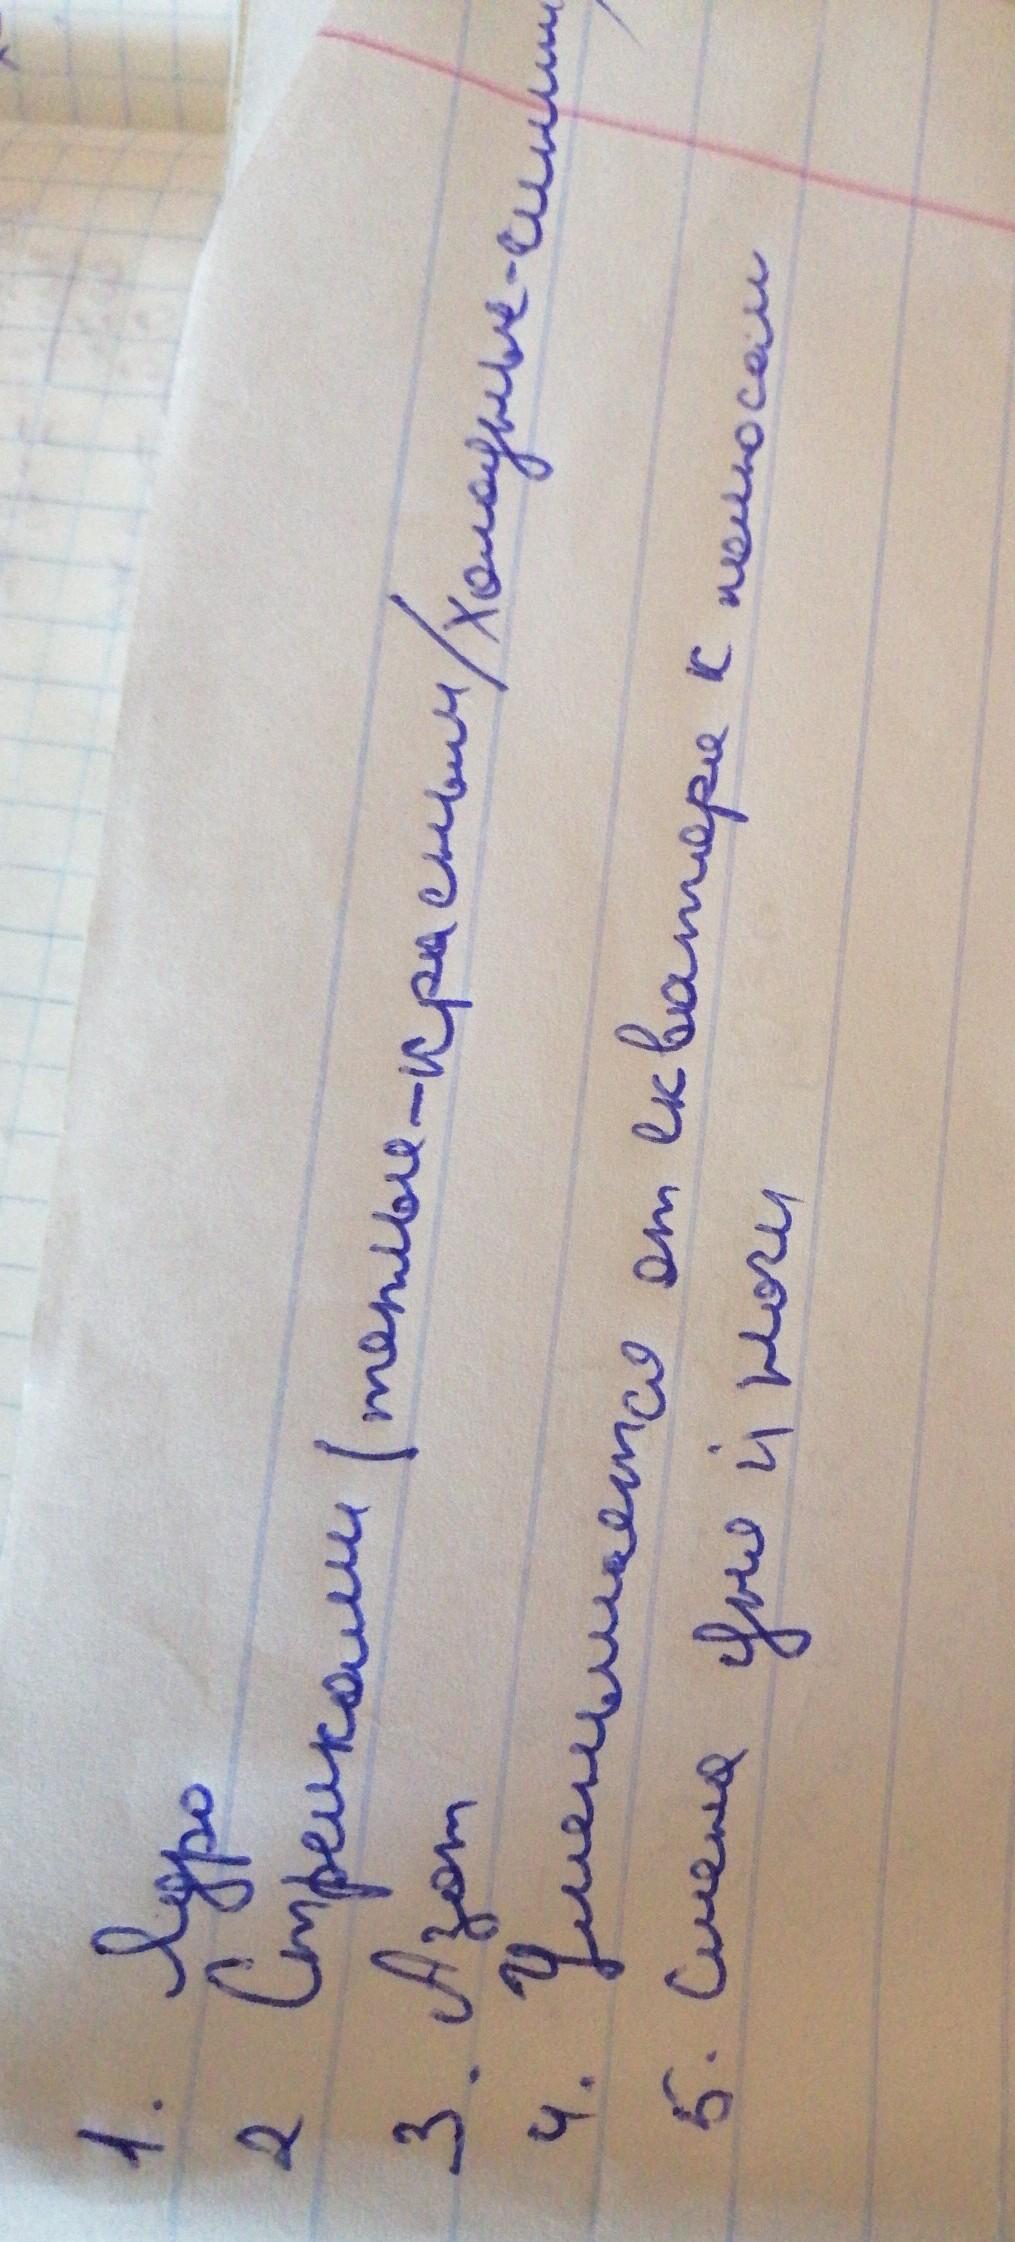 1. Ядро
2 Стрелками (теплые-красным/холодные-синим)
3. Азот
4. Уменьшается от екватера к полюсам
5. Смена дня и ночи